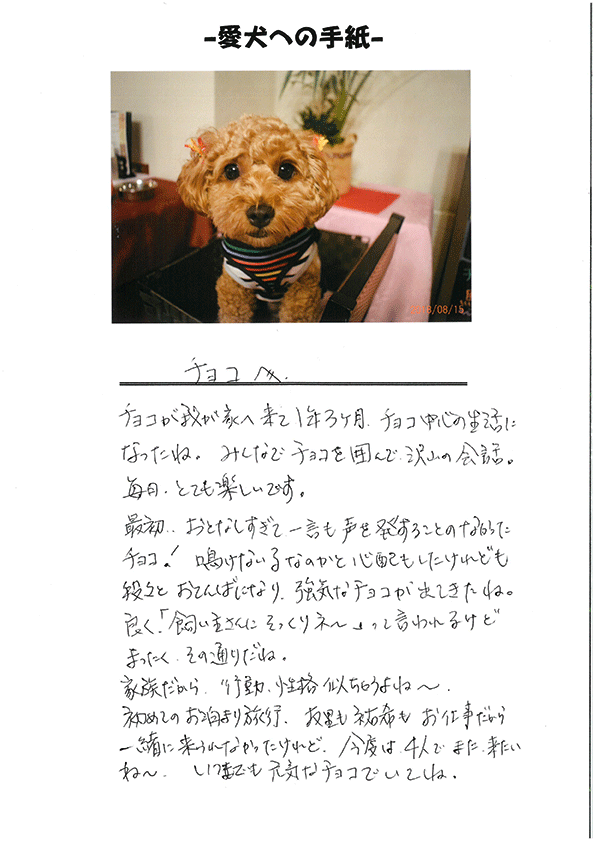 -愛犬への手紙-
18/08/15
チョコ へ
チョコが我が家へ来て1年3ヶ月、チョコ中心の生活に
なったね。みんなでチョコを囲んで、沢山の会話。
毎日、とても楽しいです。
最初、おとなしすぎて一言も声を発することのなかった
チョコ！ 鳴けない子なのかと心配もしたけれども
段々とおてんばになり、強気なチョコが出てきたね。
良く、「飼い主さんにそっくりネ〜」って言われるけど
まったく、その通りだね。
家族だから、行動、性格似ちゃうよね〜。
初めてのお泊まり旅行、 も祐希もお仕事だから
一緒に来られなかったけれど、今度は、4人でまた、来たい
ね〜。 いつまでも元気なチョコでいてね。